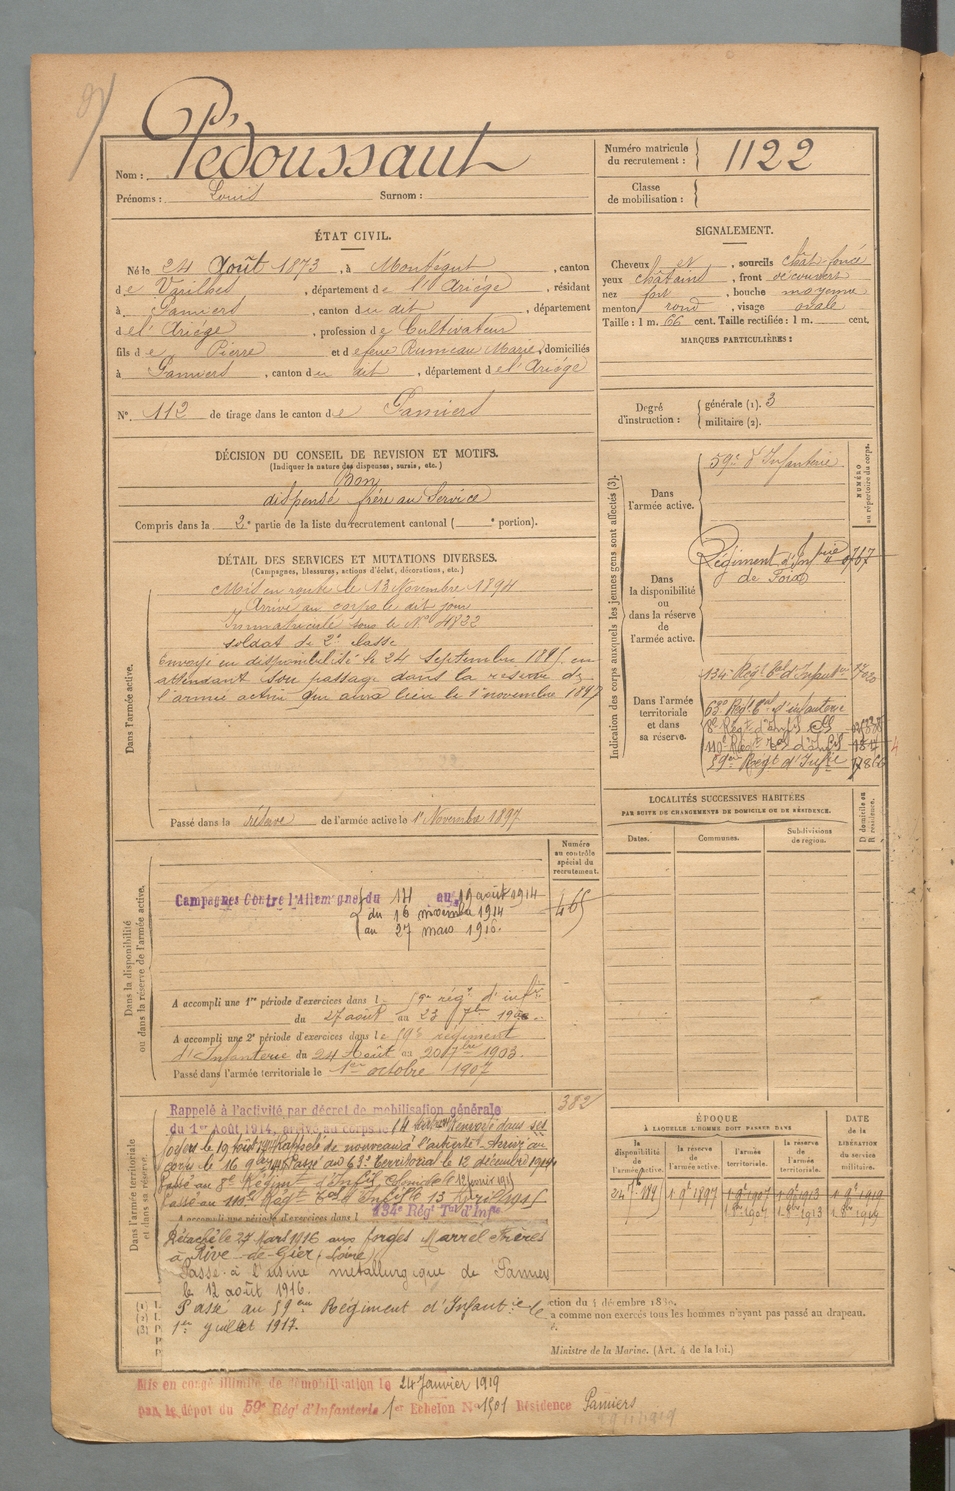 Nom : Pédoussaut
Prénoms : Louis Surnom :
Numéro matricule du recrutement : 1122
Classe de mobilisation :
ÉTAT CIVIL.
Né le 24 Août 1873, à Montégut, canton
de Varilhes, département de l'Ariège, résidant
à Pamiers, canton du dit, département
de l'Ariège, profession de Cultivateur
fils de Pierre et de feue Rumeau Marie, domiciliés
à Pamiers, canton du dit, département de l'Ariège
N° 112 de tirage dans le canton de Pamiers
SIGNALEMENT.
Cheveux et, sourcils chât. foncé
yeux châtains, front découvert
nez fort, bouche moyenne
menton rond, visage ovale
Taille : 1 m. 66 cent. Taille rectifiée : 1 m. cent.
MARQUES PARTICULIÈRES :
Degré d'instruction : générale (1). 3
militaire (2).
DÉCISION DU CONSEIL DE REVISION ET MOTIFS.
(Indiquer la nature des dispenses, sursis, etc.)
Bon
dispensé frère au Service
Compris dans la 2e partie de la liste du recrutement cantonal ( e portion).
DÉTAIL DES SERVICES ET MUTATIONS DIVERSES.
(Campagnes, blessures, actions d'éclat, décorations, etc.)
Dans l'armée active.
Mis en route le 13 Novembre 1894
Arrivé au corps le dit jour
Immatriculé sous le N° 4822
soldat de 2e classe
Envoyé en disponibilité le 24 Septembre 1895, en
attendant son passage dans la réserve de
l'armée active qui aura lieu le 1er novembre 1897
Passé dans la réserve de l'armée active le 1er Novembre 1897
Indication des corps auxquels les jeunes gens sont affectés (3).
NUMÉRO au répertoire du corps.
Dans l'armée active.
59e d'Infanterie
Dans la disponibilité ou dans la réserve de l'armée active.
Régiment d'Infrie
de Foix
Dans l'armée territoriale et dans sa réserve.
134e Régt tal d'Infanterie
63e Régt tal d'infanterie
8e Régt d'Infie
110e Régt tal d'Infie
59eme Régt d'Infie
LOCALITÉS SUCCESSIVES HABITÉES
PAR SUITE DE CHANGEMENTS DE DOMICILE OU DE RÉSIDENCE.
Dates. Communes. Subdivisions de région. D domicile ou R résidence.
Dans la disponibilité ou dans la réserve de l'armée active.
Numéro au contrôle spécial du recrutement.
465
Campagnes Contre l'Allemagne du 14 au 19 août 1914
du 16 novembre 1914
au 27 mars 1916.
A accompli une 1re période d'exercices dans l 59e régt d'infie
du 27 août au 23 7bre 1900
A accompli une 2e période d'exercices dans le 59e régiment
d'Infanterie du 24 Août au 20 7bre 1903.
Passé dans l'armée territoriale le 1er octobre 1907
382
Dans l'armée territoriale et dans sa réserve.
Rappelé à l'activité par décret de mobilisation générale
du 1er Août 1914, arrivé au corps le 14 Renvoyé dans ses
foyers le 19 août 1914 Rappelé de nouveau à l'activité Arrivé au
corps le 16 9bre 1914 Passé au 63e Territorial le 12 décembre 1914
Passé au 8e Régiment d'Infie 12 février 1915
Passé au 110e Régt tal d'Infie le 13 Avril 1915
134e Régt Tal d'Infie
A accompli une période d'exercices dans l
Détaché le 27 Mars 1916 aux forges Marrel Frères
à Rive-de-Gier (Loire)
Passé à l'usine métallurgique de Pamiers
le 12 août 1916.
Passé au 59eme Régiment d'Infantie le
1er Juillet 1917.
ÉPOQUE
À LAQUELLE L'HOMME DOIT PASSER DANS
la disponibilité de l'armée active. la réserve de l'armée active. l'armée territoriale. la réserve de l'armée territoriale.
DATE de la LIBÉRATION DU service militaire.
24 7bre 1895 1 9bre 1897 1 9bre 1907 1 9bre 1913 1 9bre 1919
1 8bre 1907 1 8bre 1913 1 8bre 1919
ction du 4 décembre 1889.
a comme non exercés tous les hommes n'ayant pas passé au drapeau.
Ministre de la Marine. (Art. 4 de la loi.)
Mis en congé illimité de démobilisation le 24 Janvier 1919
par le dépot du 59e Régt d'Infanterie 1er Echelon N° 1501 Résidence Pamiers